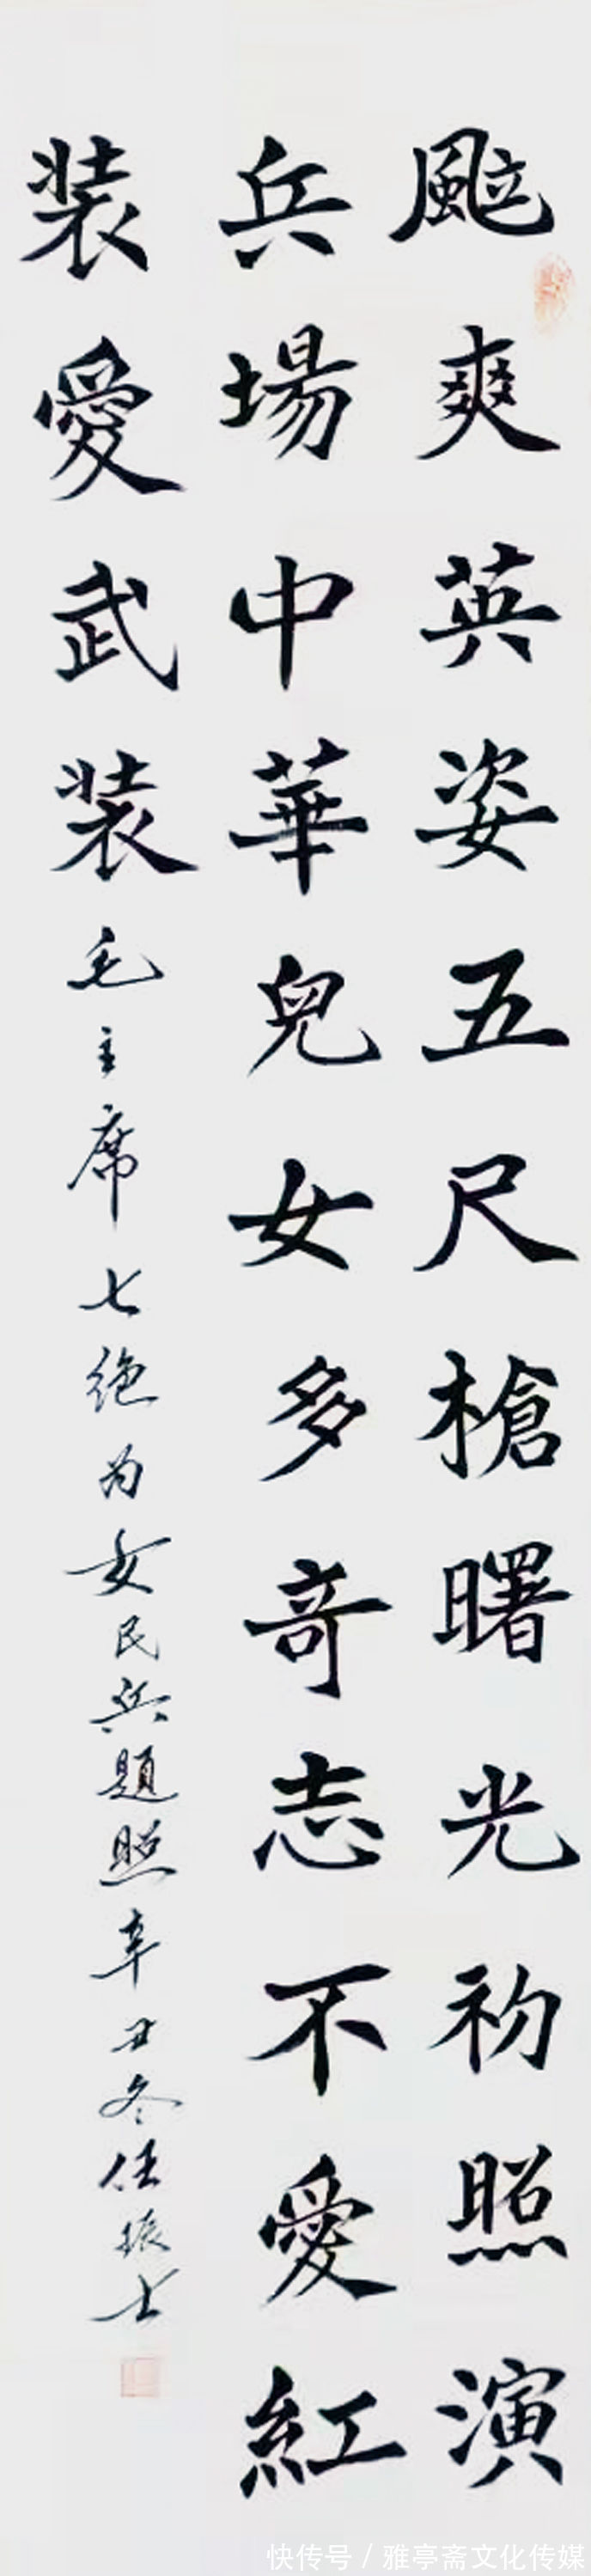 颯爽英姿五尺槍曙光初照演
兵場中華兒女多奇志不愛紅
装愛武装毛主席七绝为女民兵題照辛丑冬任振士
快传号/雅亭斋文化传媒